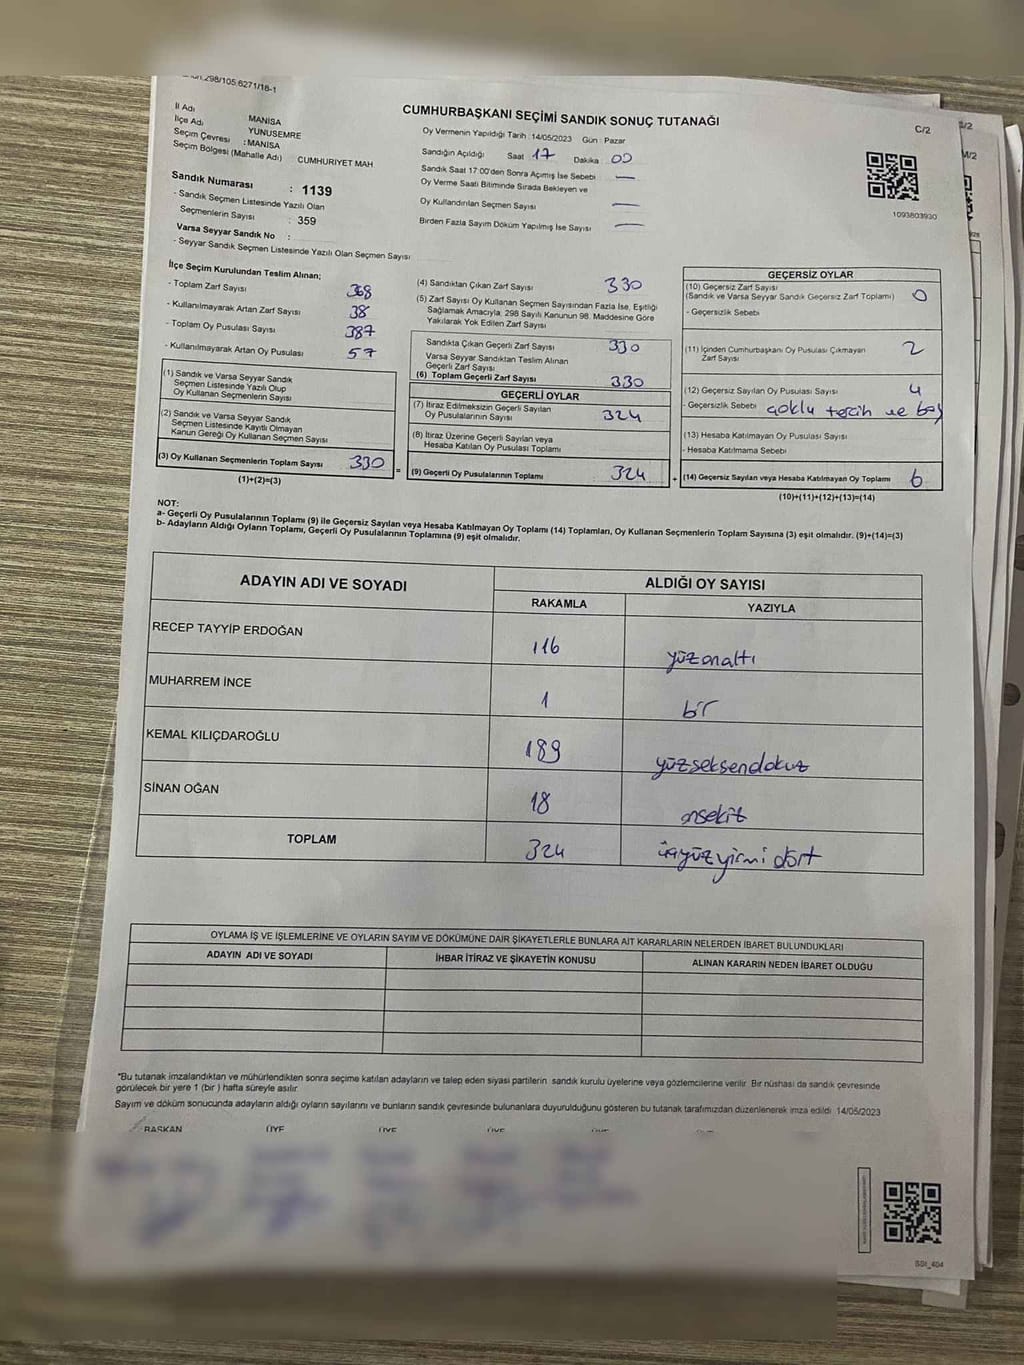 298/105.6271/18-1
CUMHURBAŞKANI SEÇİMİ SANDIK SONUÇ TUTANAĞI
C/2
İl Adı MANİSA
İlçe Adı YUNUSEMRE
Seçim Çevresi : MANİSA
Seçim Bölgesi (Mahalle Adı) CUMHURIYET MAH.
Sandık Numarası : 1139
- Sandık Seçmen Listesinde Yazılı Olan
Seçmenlerin Sayısı : 359
Varsa Seyyar Sandık No :
- Seyyar Sandık Seçmen Listesinde Yazılı Olan Seçmen Sayısı
Oy Vermenin Yapıldığı Tarih : 14/05/2023 Gün : Pazar
Sandığın Açıldığı Saat 17 Dakika 00
Sandık Saat 17:00'den Sonra Açımış İse Sebebi —
Oy Verme Saati Bitiminde Sırada Bekleyen ve
Oy Kullandırılan Seçmen Sayısı —
Birden Fazla Sayım Döküm Yapılmış İse Sayısı —
1093803930
İlçe Seçim Kurulundan Teslim Alınan;
- Toplam Zarf Sayısı 368
- Kullanılmayarak Artan Zarf Sayısı 38
- Toplam Oy Pusulası Sayısı 387
- Kullanılmayarak Artan Oy Pusulası 57
(1) Sandık ve Varsa Seyyar Sandık
Seçmen Listesinde Yazılı Olup
Oy Kullanan Seçmenlerin Sayısı
(2) Sandık ve Varsa Seyyar Sandık
Seçmen Listesinde Kayıtlı Olmayan
Kanun Gereği Oy Kullanan Seçmen Sayısı
(3) Oy Kullanan Seçmenlerin Toplam Sayısı 330 =
(1)+(2)=(3)
(4) Sandıktan Çıkan Zarf Sayısı 330
(5) Zarf Sayısı Oy Kullanan Seçmen Sayısından Fazla İse, Eşitliği
Sağlamak Amacıyla, 298 Sayılı Kanunun 98. Maddesine Göre
Yakılarak Yok Edilen Zarf Sayısı
Sandıkta Çıkan Geçerli Zarf Sayısı 330
Varsa Seyyar Sandıktan Teslim Alınan
Geçerli Zarf Sayısı
(6) Toplam Geçerli Zarf Sayısı 330
GEÇERLİ OYLAR
(7) İtiraz Edilmeksizin Geçerli Sayılan
Oy Pusulalarının Sayısı 324
(8) İtiraz Üzerine Geçerli Sayılan veya
Hesaba Katılan Oy Pusulası Toplamı
(9) Geçerli Oy Pusulalarının Toplamı 324 +
GEÇERSİZ OYLAR
(10) Geçersiz Zarf Sayısı
(Sandık ve Varsa Seyyar Sandık Geçersiz Zarf Toplamı) 0
- Geçersizlik Sebebi
(11) İçinden Cumhurbaşkanı Oy Pusulası Çıkmayan
Zarf Sayısı 2
(12) Geçersiz Sayılan Oy Pusulası Sayısı 4
- Geçersizlik Sebebi çoklu tercih ve boş
(13) Hesaba Katılmayan Oy Pusulası Sayısı
- Hesaba Katılmama Sebebi
(14) Geçersiz Sayılan veya Hesaba Katılmayan Oy Toplamı 6
(10)+(11)+(12)+(13)=(14)
NOT:
a- Geçerli Oy Pusulalarının Toplamı (9) ile Geçersiz Sayılan veya Hesaba Katılmayan Oy Toplamı (14) Toplamları, Oy Kullanan Seçmenlerin Toplam Sayısına (3) eşit olmalıdır. (9)+(14)=(3)
b- Adayların Aldığı Oyların Toplamı, Geçerli Oy Pusulalarının Toplamına (9) eşit olmalıdır.
ADAYIN ADI VE SOYADI ALDIĞI OY SAYISI
RAKAMLA YAZIYLA
RECEP TAYYİP ERDOĞAN 116 yüzonaltı
MUHARREM İNCE 1 bir
KEMAL KILIÇDAROĞLU 189 yüzseksendokuz
SİNAN OĞAN 18 onsekiz
TOPLAM 324 üçyüzyirmi dört
OYLAMA İŞ VE İŞLEMLERİNE VE OYLARIN SAYIM VE DÖKÜMÜNE DAİR ŞİKAYETLERLE BUNLARA AİT KARARLARIN NELERDEN İBARET BULUNDUKLARI
ADAYIN ADI VE SOYADI İHBAR İTİRAZ VE ŞİKAYETİN KONUSU ALINAN KARARIN NEDEN İBARET OLDUĞU
*Bu tutanak imzalandıktan ve mühürlendikten sonra seçime katılan adayların ve talep eden siyasi partilerin sandık kurulu üyelerine veya gözlemcilerine verilir. Bir nüshası da sandık çevresinde
görülecek bir yere 1 (bir) hafta süreyle asılır.
Sayım ve döküm sonucunda adayların aldığı oyların sayılarını ve bunların sandık çevresinde bulunanlara duyurulduğunu gösteren bu tutanak tarafımızdan düzenlenerek imza edildi. 14/05/2023
BAŞKAN ÜYE ÜYE ÜYE
SSI_404